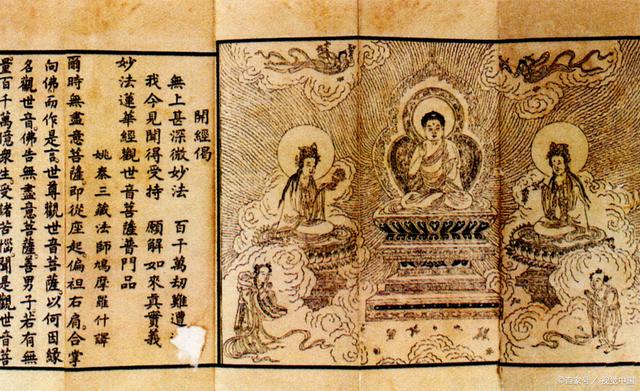 開經偈
無上甚深微妙法　百千萬劫難遭
我今見聞得受持　願解如來真實義
妙法蓮華經觀世音菩薩普門品
姚秦三藏法師鳩摩羅什譯
爾時無盡意菩薩。即從座起。偏袒右肩。合掌
向佛而作是言。世尊觀世音菩薩以何因緣
名觀世音。佛告無盡意菩薩。善男子若有無
量百千萬億衆生受諸苦惱聞是觀世音菩
©百家号/视觉中国